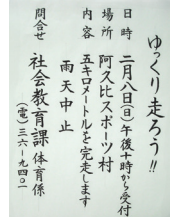 ゆっくり走ろう!!
日時 二月八日(日)午後十時から受付
場所 阿久比スポーツ村
内容 五キロメートルを完走します
雨天中止
問合せ 社会教育課 体育係
(電)三六-九四〇一